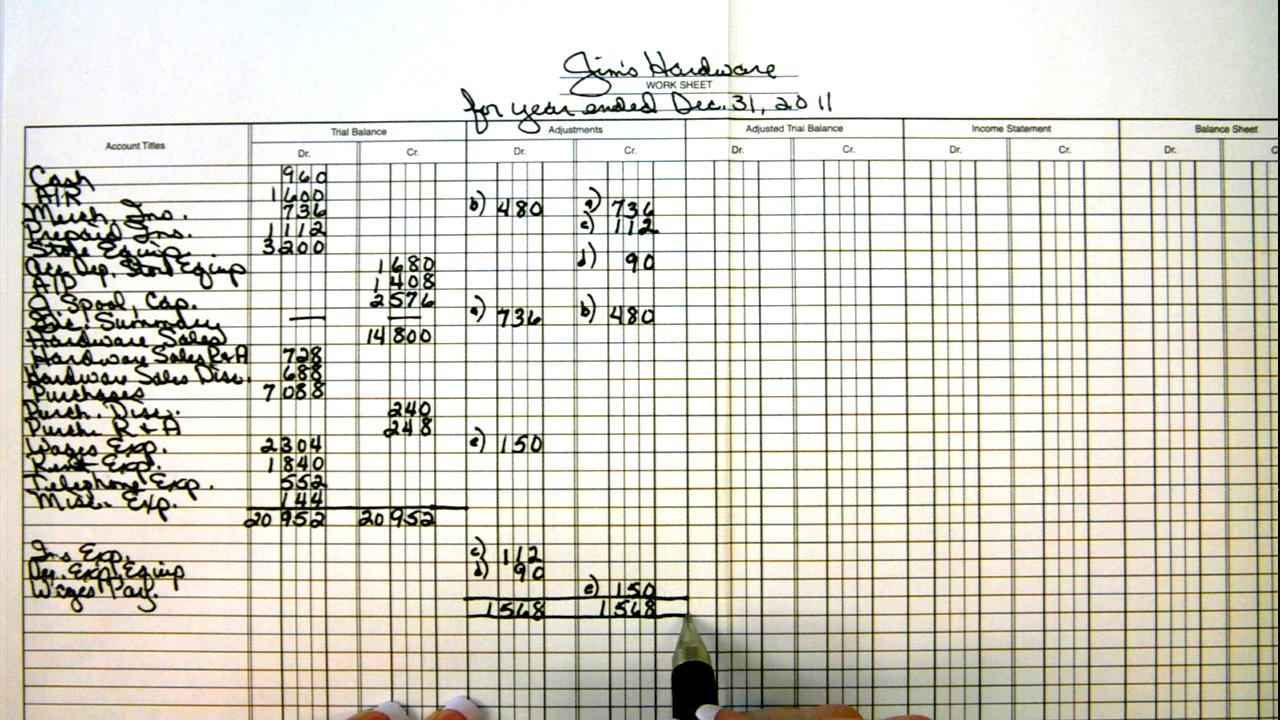 Jim's Hardware
WORK SHEET
for year ended Dec. 31, 2011
Account Titles Trial Balance Adjustments Adjusted Trial Balance Income Statement Balance Sheet
Dr. Cr. Dr. Cr. Dr. Cr. Dr. Cr. Dr. C
Cash 960
A/R 1600
Merch. Ins. 736 b) 480 a) 736
Prepaid Ins. 1112 c) 112
Store Equip. 3200
Acc. Dep. Store Equip 1680 d) 90
A/P 1408
J. Spool, Cap. 2576
Summary — — a) 736 b) 480
Hardware Sales 14800
Hardware Sales R+A 728
Hardware Sales Disc. 688
Purchases 7088
Purch. Disc. 240
Purch. R+A 248
Wages Exp. 2304 e) 150
Rent Exp. 1840
Telephone Exp. 552
Misc. Exp. 144
20952 20952
Ins Exp. c) 112
Dep. Exp. Equip d) 90
Wages Pay. e) 150
1568 1568